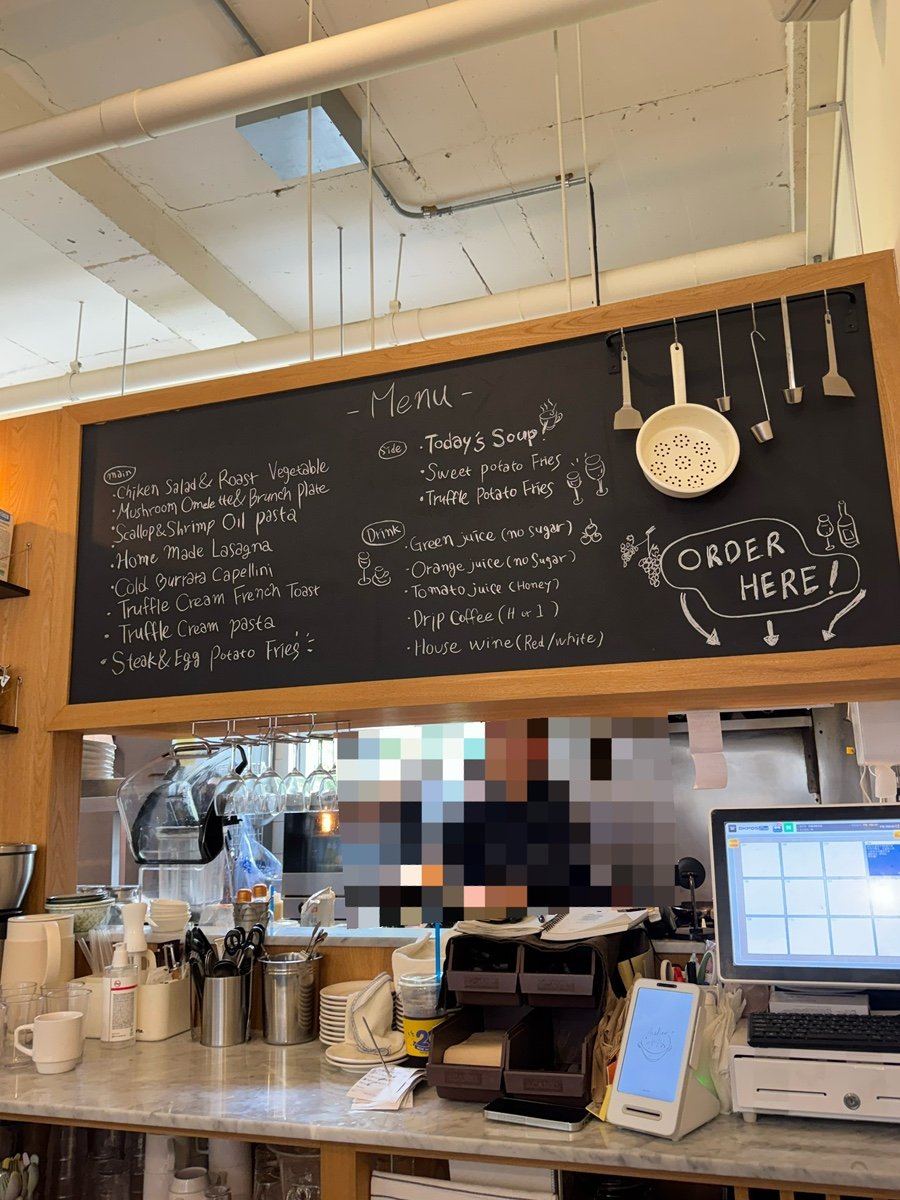 - Menu -
main
· Chiken Salad & Roast Vegetable
· Mushroom Omelette & Brunch plate
· Scallop & Shrimp Oil pasta
· Home Made Lasagna
· Cold Burrata Capellini
· Truffle Cream French Toast
· Truffle Cream pasta
· Steak & Egg Potato Fries
Side
· Today's Soup!
· Sweet potato Fries
· Truffle Potato Fries
Drink
· Green juice (no sugar)
· Orange juice (no Sugar)
· Tomato juice (Honey)
· Drip Coffee (H or I)
· House wine (Red/white)
ORDER
HERE!